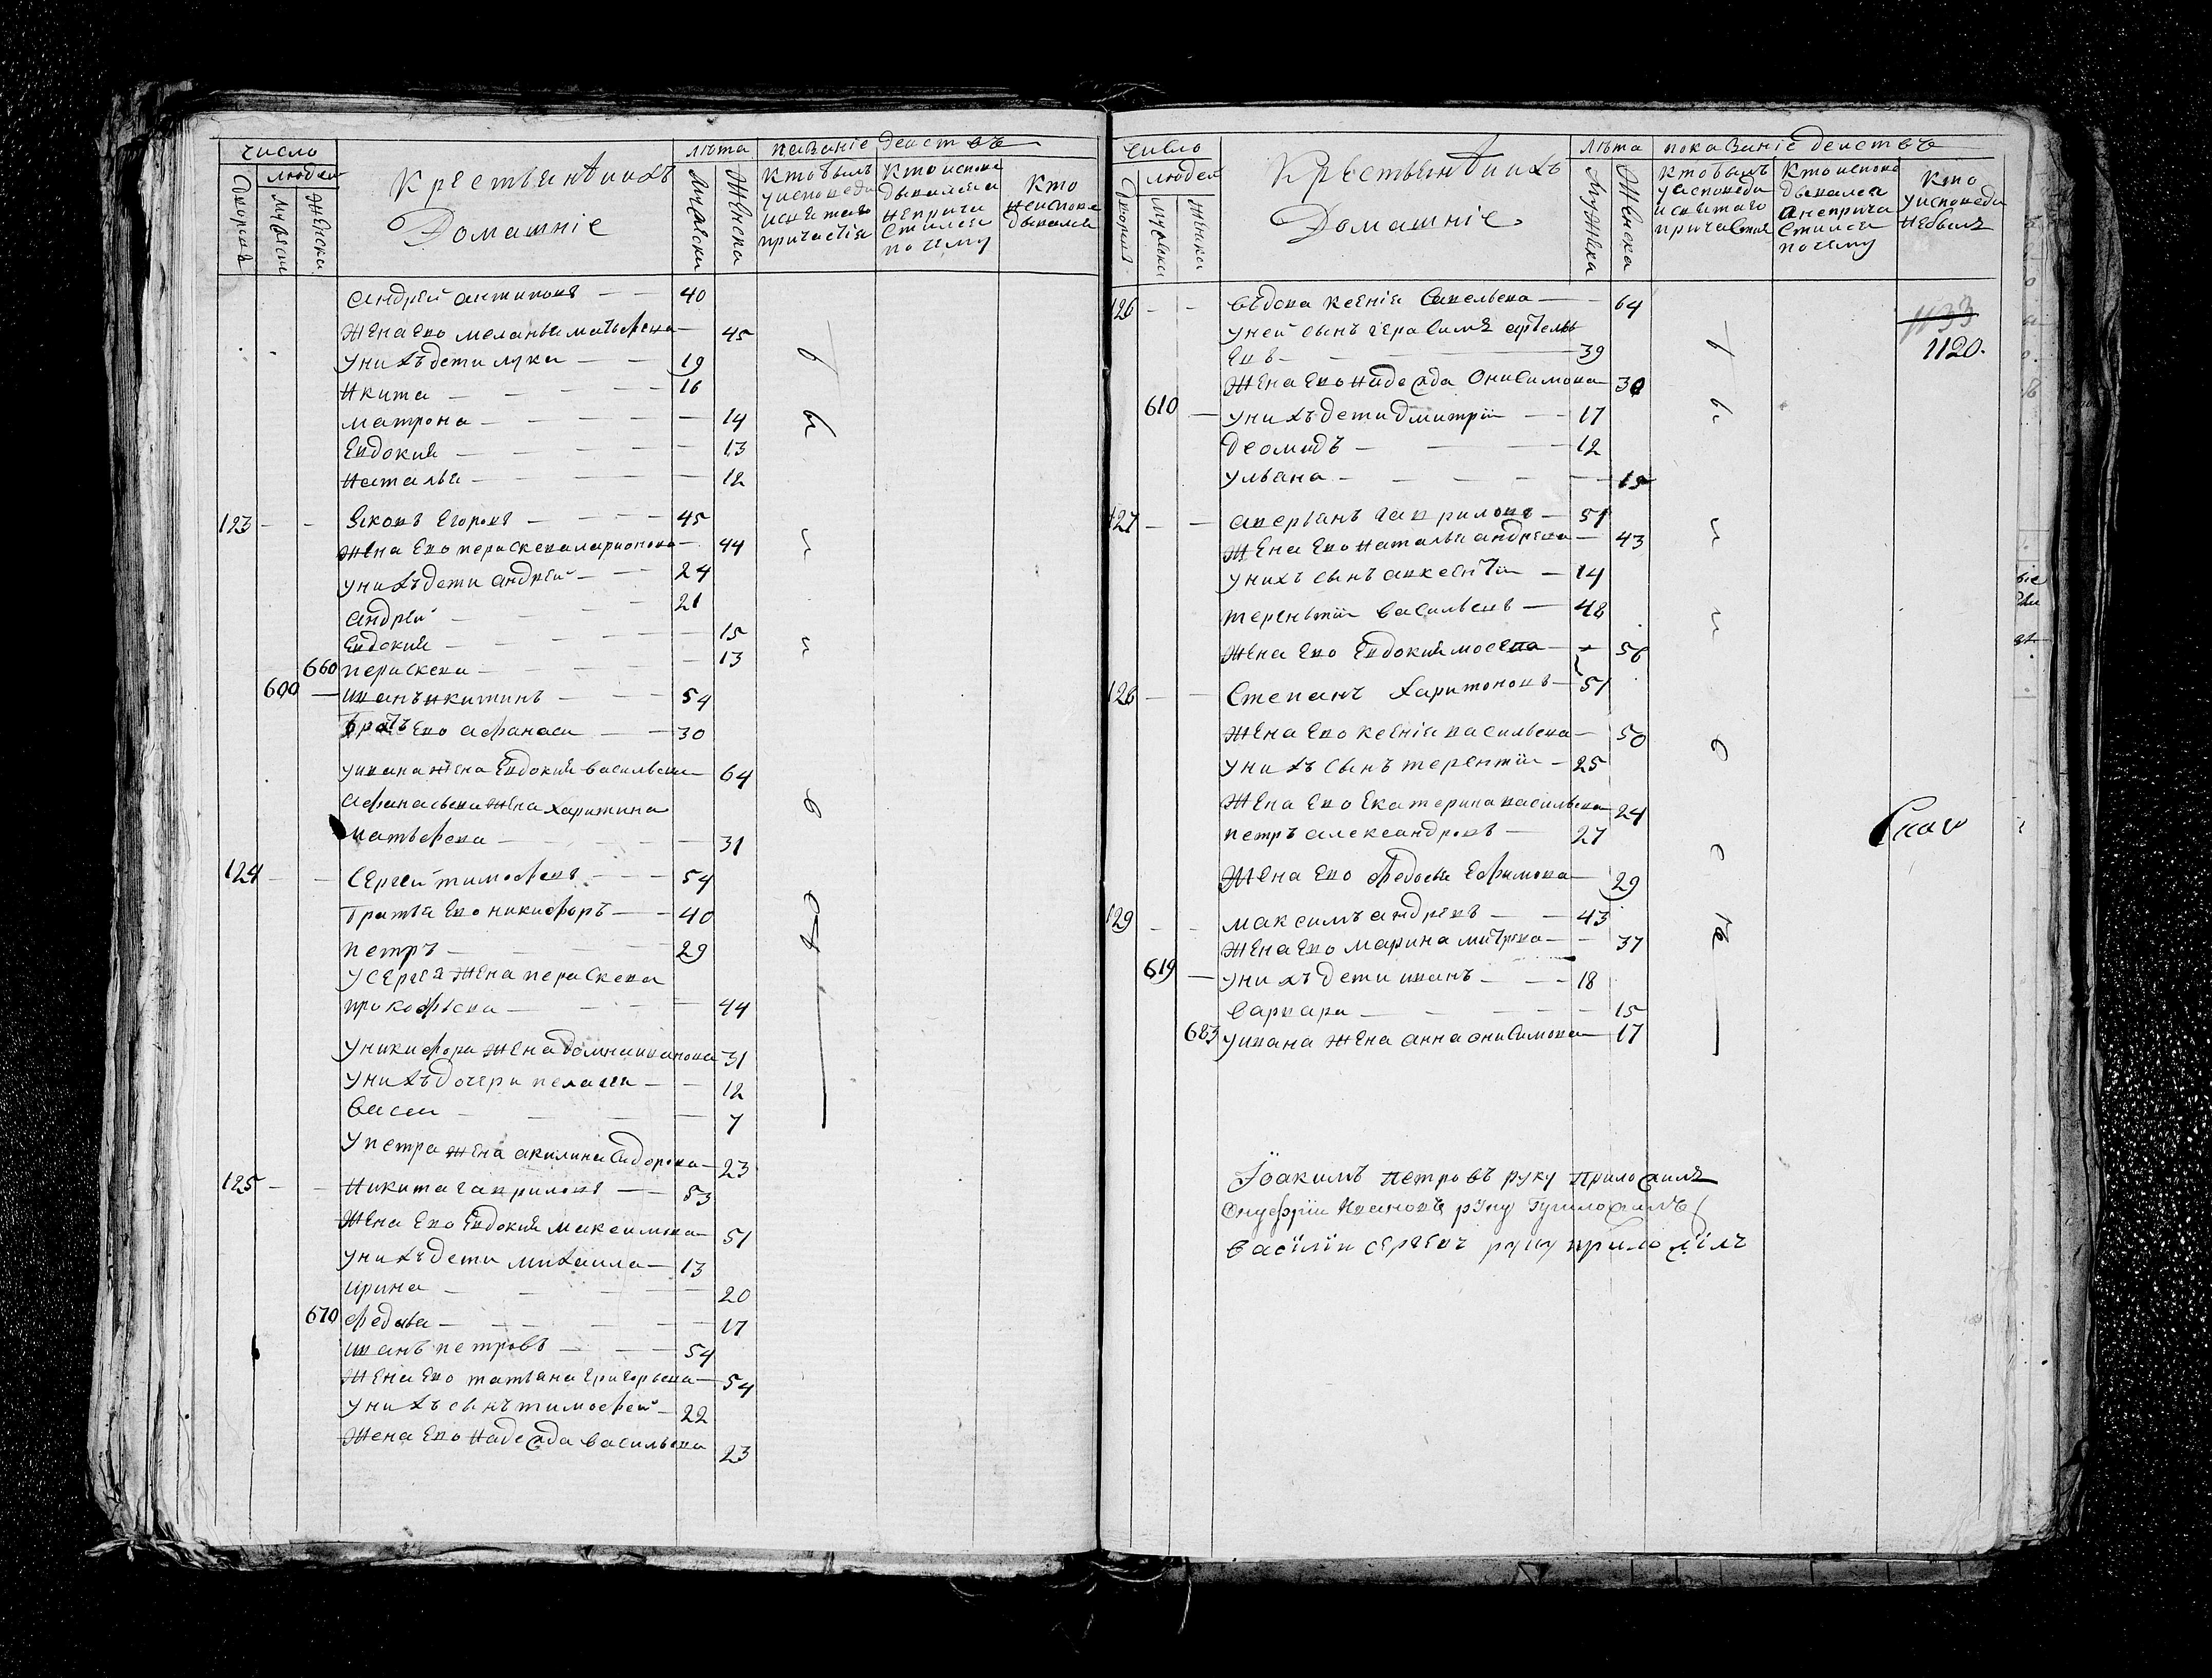 число
людей
дворовъ
мужеска
женска
Крестьян и ихъ
Домашніе
лѣта
Мужеска
Женска
показание действъ
кто былъ
у исповеди
и святаго
причастія
Кто испове
дывался
а неприча
стился
почему
Кто
не испове
дывался
андрей антиповъ — — 40
Жена ево меланья матвѣева — 45
у нихъ дети лука — — 19
Никита — — — 16
матрона — — — 14
Евдокия — — — 13
Наталья — — — 12
123 — — Яковъ Егоровъ — — 45
Жена Ево параскева ларионова — 44
у нихъ дети андрей — — 24
андрей — — 21
Евдокия — — — 15
660 параскева — — 13
600 — иванъ никитинъ — — 54
братъ Ево афанаси — — 30
у ивана жена Евдокия васильева — 64
афанасьева жена харитина
матвѣева — — — 31
124 — — Сергей тимофеевъ — — 54
братья Ево никифоръ — — 40
петръ — — 29
у Сергея жена параскева
прокофьева — — — 44
у никифора жена домна иванова 31
у нихъ дочери пелагея — — 12
васса — — — 7
у петра жена акилина Сидорова — 23
125 — — Никита гавриловъ — — 53
Жена Ево Евдокия максимова — 51
у нихъ дети михаила — 13
ирина — — — 20
670 федосья — — — 17
иванъ петровъ — — 54
Жена Ево татьяна григорьева — 54
у нихъ сынъ тимофей — 22
Жена Ево надежда васильева 23
число
людей
дворовъ
мужеска
женска
Крестьян и ихъ
Домашніе
лѣта
Мужеска
Женска
показаніе действъ
кто былъ
у исповеди
и святаго
причастия
Кто испове
дывался
а неприча
стился
почему
Кто
у исповеди
небылъ
1133
1120.
126 — — вдова ксения Савельева — — 64
у ней сынъ герасимъ артемь
евъ — — 39
Жена Ево надежда Онисимова — 30
610 — у нихъ дети дмитрій — — 17
деомидъ — — 12
ульяна — — — 15
127 — — аверьянъ гавриловъ — 51
Жена Ево наталья андреева — 43
у нихъ сынъ авксентій — 14
терентий васильевъ — 48
Жена Ево Евдокия мосеева — 56
128 — — Степанъ харитоновъ — 51
Жена Ево ксения васильева — 50
у нихъ сынъ терентий — 25
Жена Ево Екатерина васильева 24
петръ александровъ — 27
Жена Ево федосья Ефимова — 29
129 — — максимъ андреевъ — — 43
Жена Ево марина митрева — — 37
619 — у нихъ дети иванъ — — 18
варвара — — — 15
683 у ивана жена анна онисимова — 17
Іоакимъ петровъ руку приложилъ
Онуфрій Ивановъ руку приложилъ
василий сергеевъ руку приложилъ